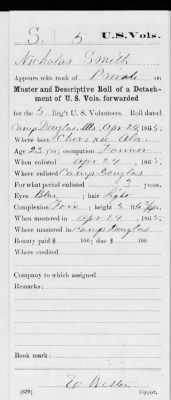 S. 5 U.S. Vols.
Nicholas Smith
Appears with rank of Private on
Muster and Descriptive Roll of a Detach-
ment of U. S. Vols. forwarded
for the 5 Reg't U. S. Volunteers. Roll dated
Camp Douglas, Ills, Apr 24, 1865.
Where born Cherokee Ala.
Age 23 y'rs; occupation Farmer
When enlisted Apr 24, 1865.
Where enlisted Camp Douglas
For what period enlisted 3 years.
Eyes Blue; hair Light
Complexion Fair; height 5 ft. in.
When mustered in Apr 24, 1865.
Where mustered in Camp Douglas
Bounty paid $ 100; due $ 100
Where credited
Company to which assigned
Remarks:
Book mark:
(839) Copyist.